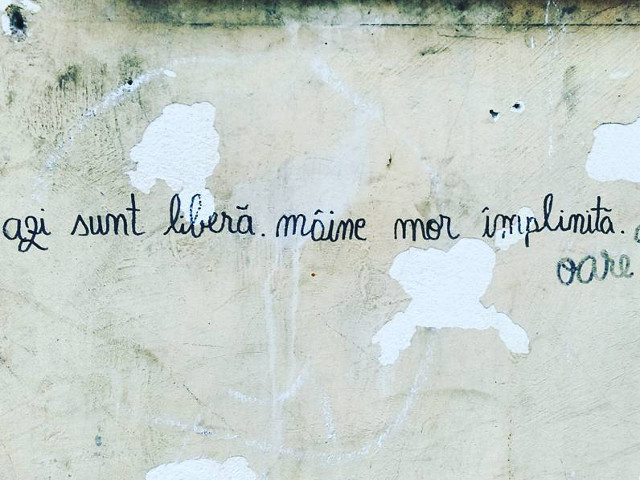 azi sunt liberă. mâine mor împlinită.
oare